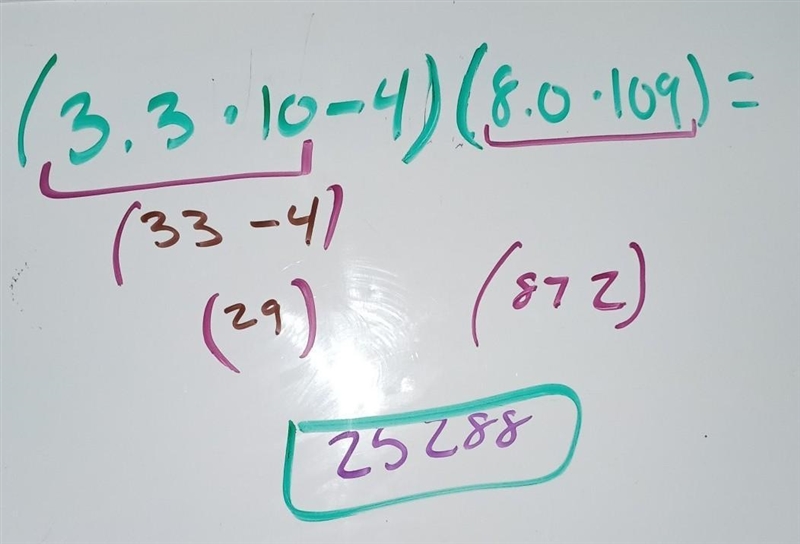 (3.3 · 10 - 4)(8.0 · 109) =
(33 - 4)
(29) (872)
25288